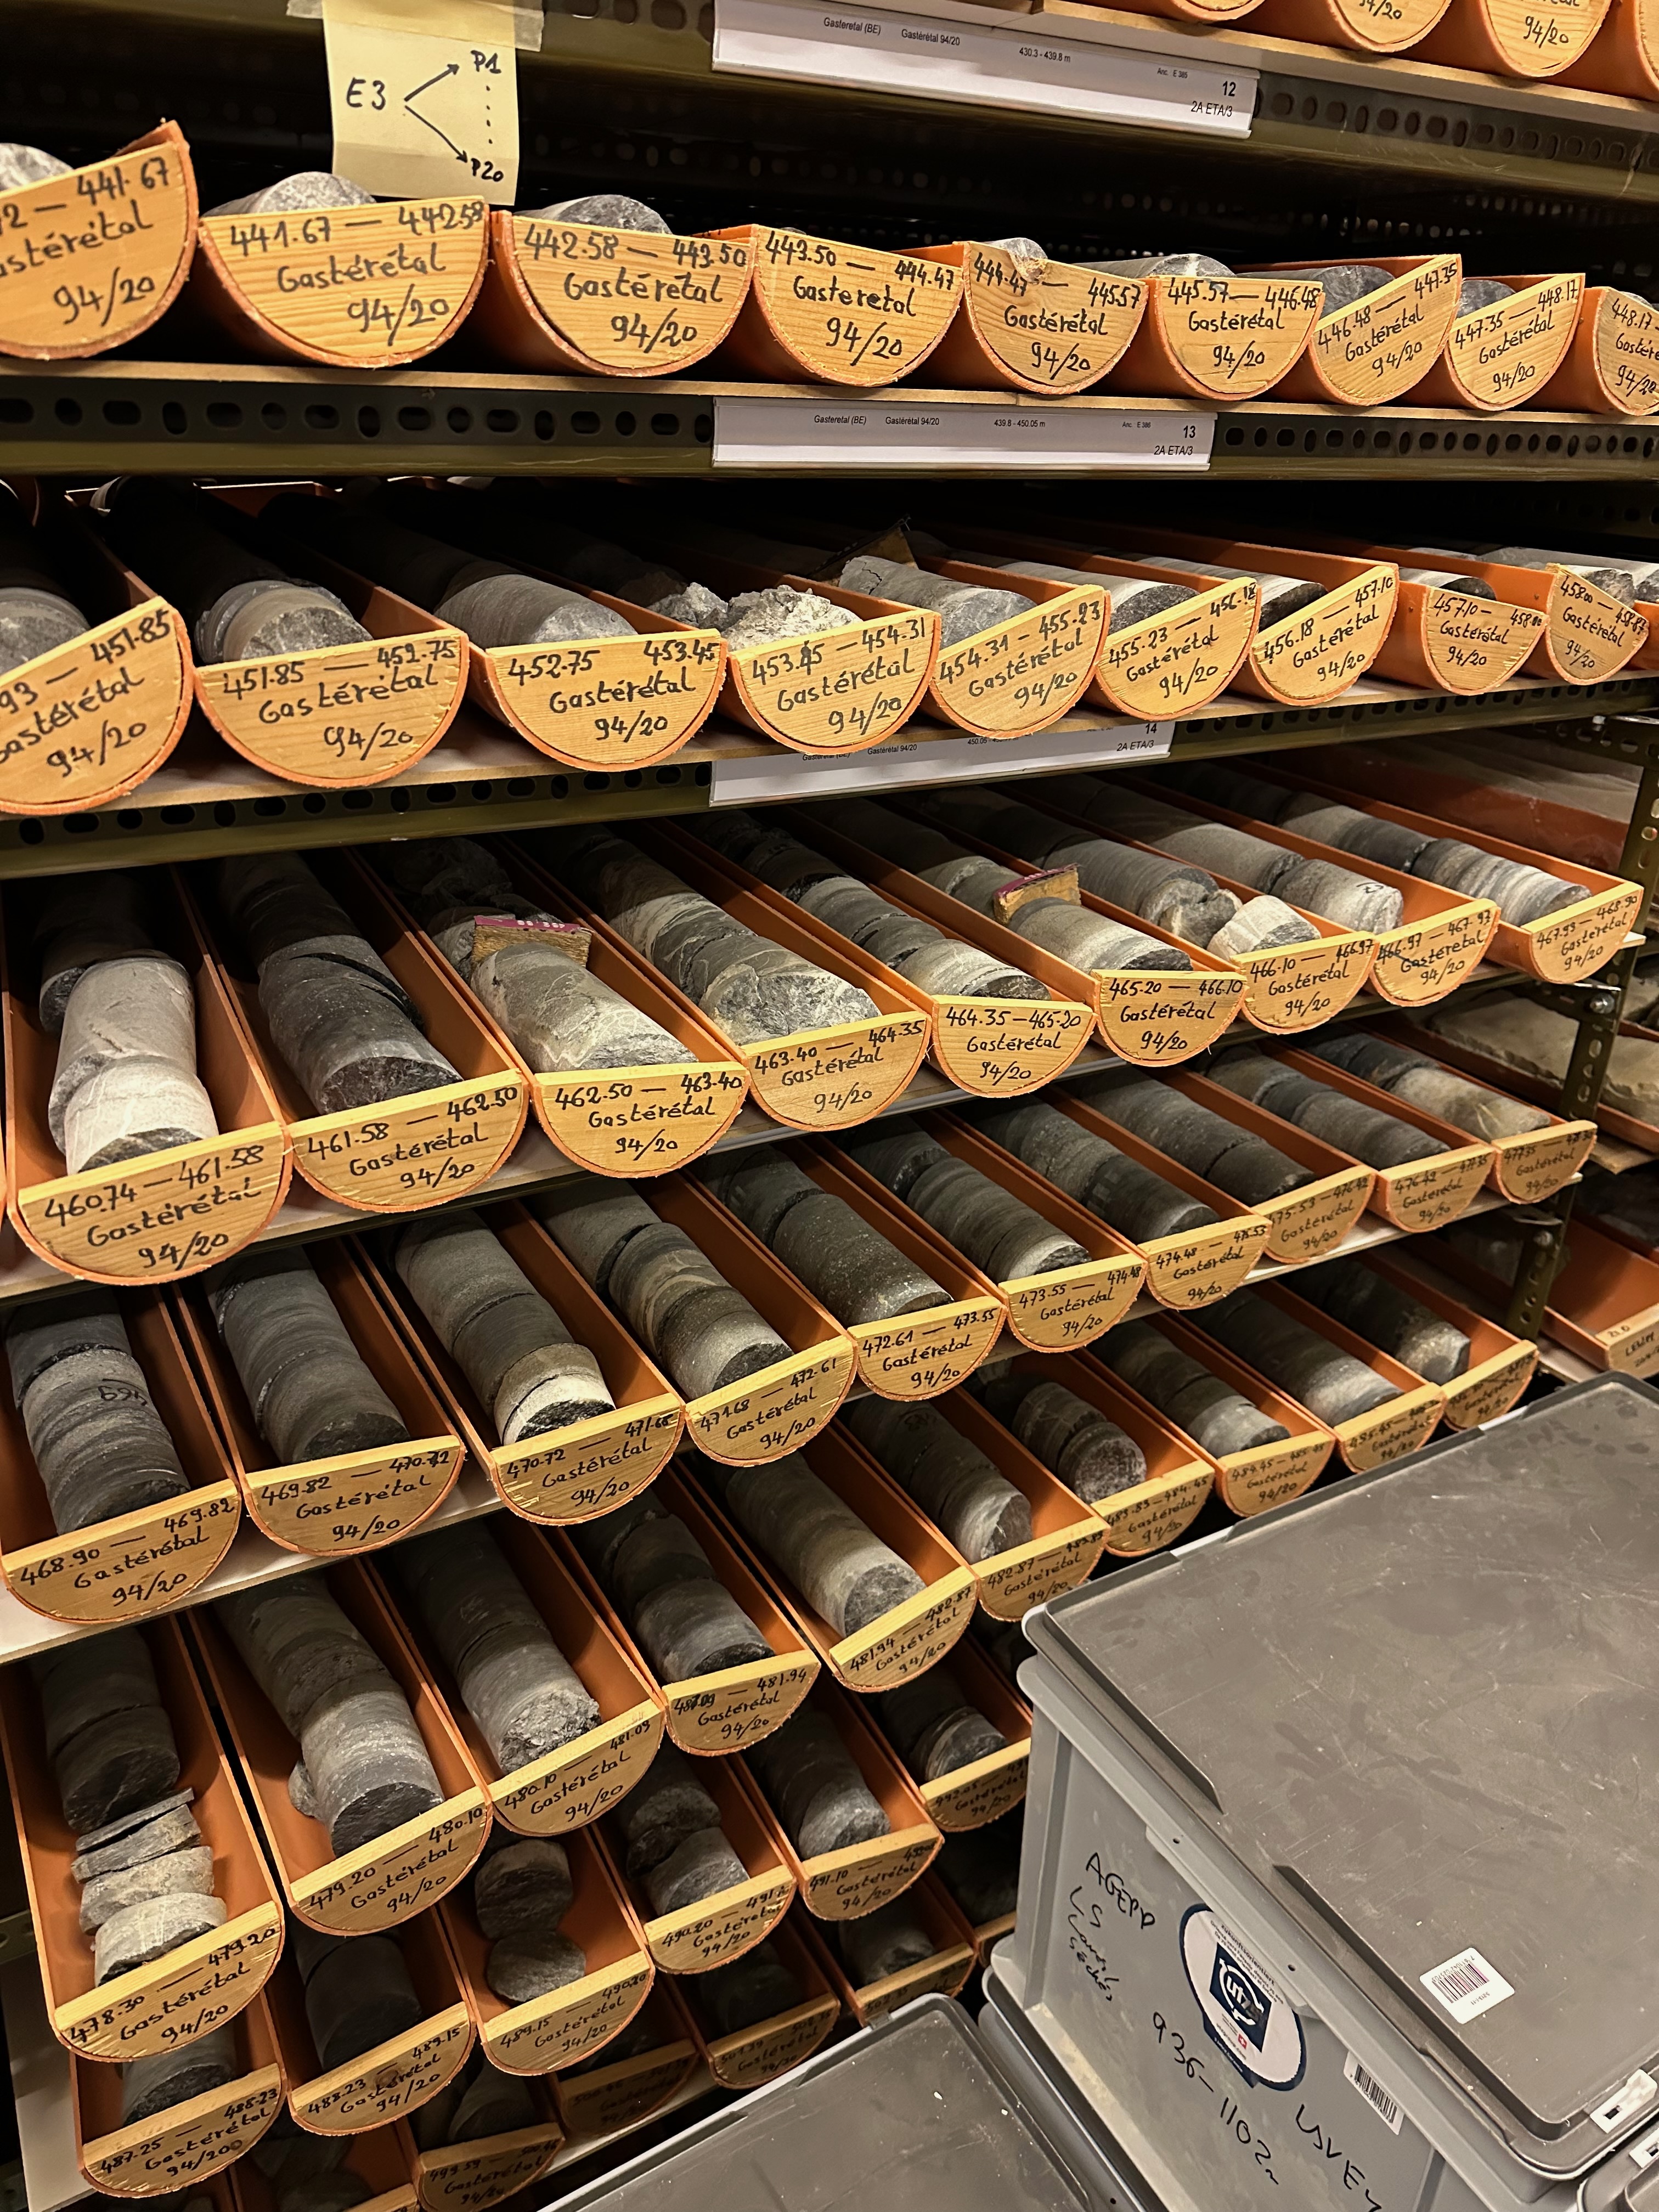 94/20
94/20
Gasteretal (BE) Gastérétal 94/20 430.3 - 439.8 m Anc. E 385 12
2A ETA/3
E3 P1
P20
441.67
94/20
441.67 — 442.58
Gastérétal
94/20
442.58 — 443.50
Gastérétal
94/20
443.50 — 444.47
Gasteretal
94/20
444.47 — 445.57
Gastérétal
94/20
445.57 — 446.48
Gastérétal
94/20
446.48 — 447.35
Gastérétal
94/20
447.35 — 448.17
Gastérétal
94/20
448.17
94/20
Gasteretal (BE) Gastérétal 94/20 439.8 - 450.05 m Anc. E 386 13
2A ETA/3
93 — 451.85
Gastérétal
94/20
451.85 — 452.75
Gastérétal
94/20
452.75 453.45
Gastérétal
94/20
453.45 — 454.31
Gastérétal
94/20
454.31 — 455.23
Gastérétal
94/20
455.23 — 456.18
Gastérétal
94/20
456.18 — 457.10
Gastérétal
94/20
457.10 — 458.00
Gastérétal
94/20
458.00
Gastérétal
94/20
Gastérétal 94/20 14
2A ETA/3
460.74 — 461.58
Gastérétal
94/20
461.58 — 462.50
Gastérétal
94/20
462.50 — 463.40
Gastérétal
94/20
463.40 — 464.35
Gastérétal
94/20
464.35 — 465.20
Gastérétal
94/20
465.20 — 466.10
Gastérétal
94/20
466.10 — 466.97
Gastérétal
94/20
466.97 — 467.93
Gastérétal
94/20
467.93 — 468.90
Gastérétal
94/20
468.90 — 469.82
Gastérétal
94/20
469.82 — 470.72
Gastérétal
94/20
470.72 — 471.68
Gastérétal
94/20
471.68 — 472.61
Gastérétal
94/20
472.61 — 473.55
Gastérétal
94/20
473.55 — 474.48
Gastérétal
94/20
474.48 — 475.53
Gastérétal
94/20
475.53 — 476.42
Gastérétal
94/20
476.42 — 477.35
Gastérétal
94/20
477.35
Gastérétal
94/20
478.30 — 479.20
Gastérétal
94/20
479.20 — 480.10
Gastérétal
94/20
480.10 — 481.09
Gastérétal
94/20
481.09 — 481.94
Gastérétal
94/20
481.94 — 482.87
Gastérétal
94/20
482.87 — 483.83
Gastérétal
94/20
483.83 — 484.45
Gastérétal
94/20
484.45
Gastérétal
94/20
Gastérétal
94/20
487.25 — 488.23
Gastérétal
94/20
488.23 — 489.15
Gastérétal
94/20
489.15 — 490.20
Gastérétal
94/20
490.20 — 491.10
Gastérétal
94/20
491.10
Gastérétal
94/20
492.05
Gastérétal
94/20
499.59
Gastérétal
AGEPP
LS
Lavés
séchés
936-1102m
LAVEY